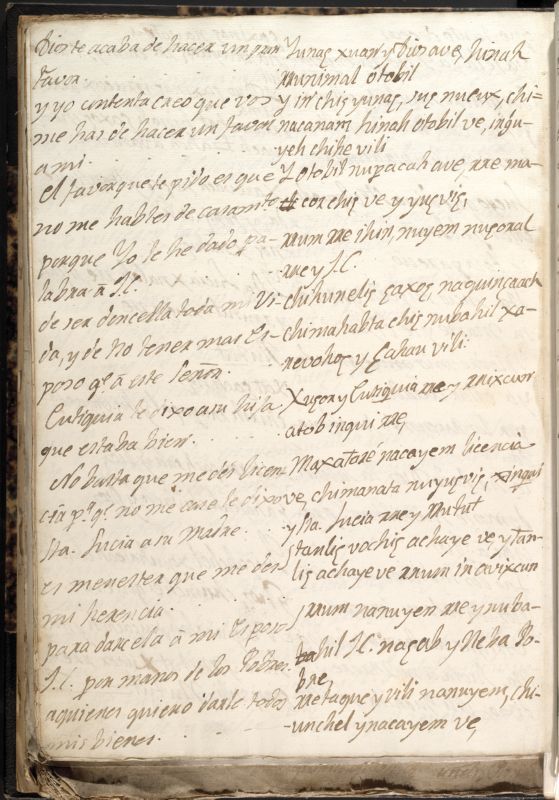 Dios te acaba de hacer un gran
favor.
y yo contenta creo que vos
me has de hacer un favor
a mi.
el favor que te pido es que
no me hables de casamto
porque Yo le he dado pa-
labra â J.C.
de ser doncella toda mi vi-
da, y de no tener mas es-
poso q.e â este Señor.
Eutiquia le dixo a su hija
que estaba bien.
No basta que me des licen-
cia p.a q.e no me case le dixo
Sta. Lucia a su Madre.
es menester que me des
mi herencia.
para darsela â mi Esposo
J.C. por manos de los Pobres.
a quienes quiero darle todos
mis bienes.
Yunaç xuan y Dios ave, hinah
nunimal otobil
y in chiç yunaç, suç nueux, chi-
nacanam hinah otobil ve, inqu
yeh chihe vili
Y otobil nupacah ave, rre ma-
coschiç ve y yuçviç,
rrum rre ihin, nuyem nuçoral
rre y J.C.
chihuneliç çaxoç naquincaach
chimahabta chiç nubahil xa-
nevohoç y Çahau vili.
Xuçon y Eutiquia rre y mixcun
atob inqui rre,
Maxatosé nacayem licencia
ve, chimanata nuyuçviç, xinqui
y Sta. Lucia rre y Mutut
tanliç vochiç achaye ve, y tan-
liç achaye ve rrum in avixcun
rrum nanuyem rre y nuba-
bahil J.C. naçab y Neba Po-
bre,
metaque y vili nanuyem, chi-
unchel y nacayem ve,